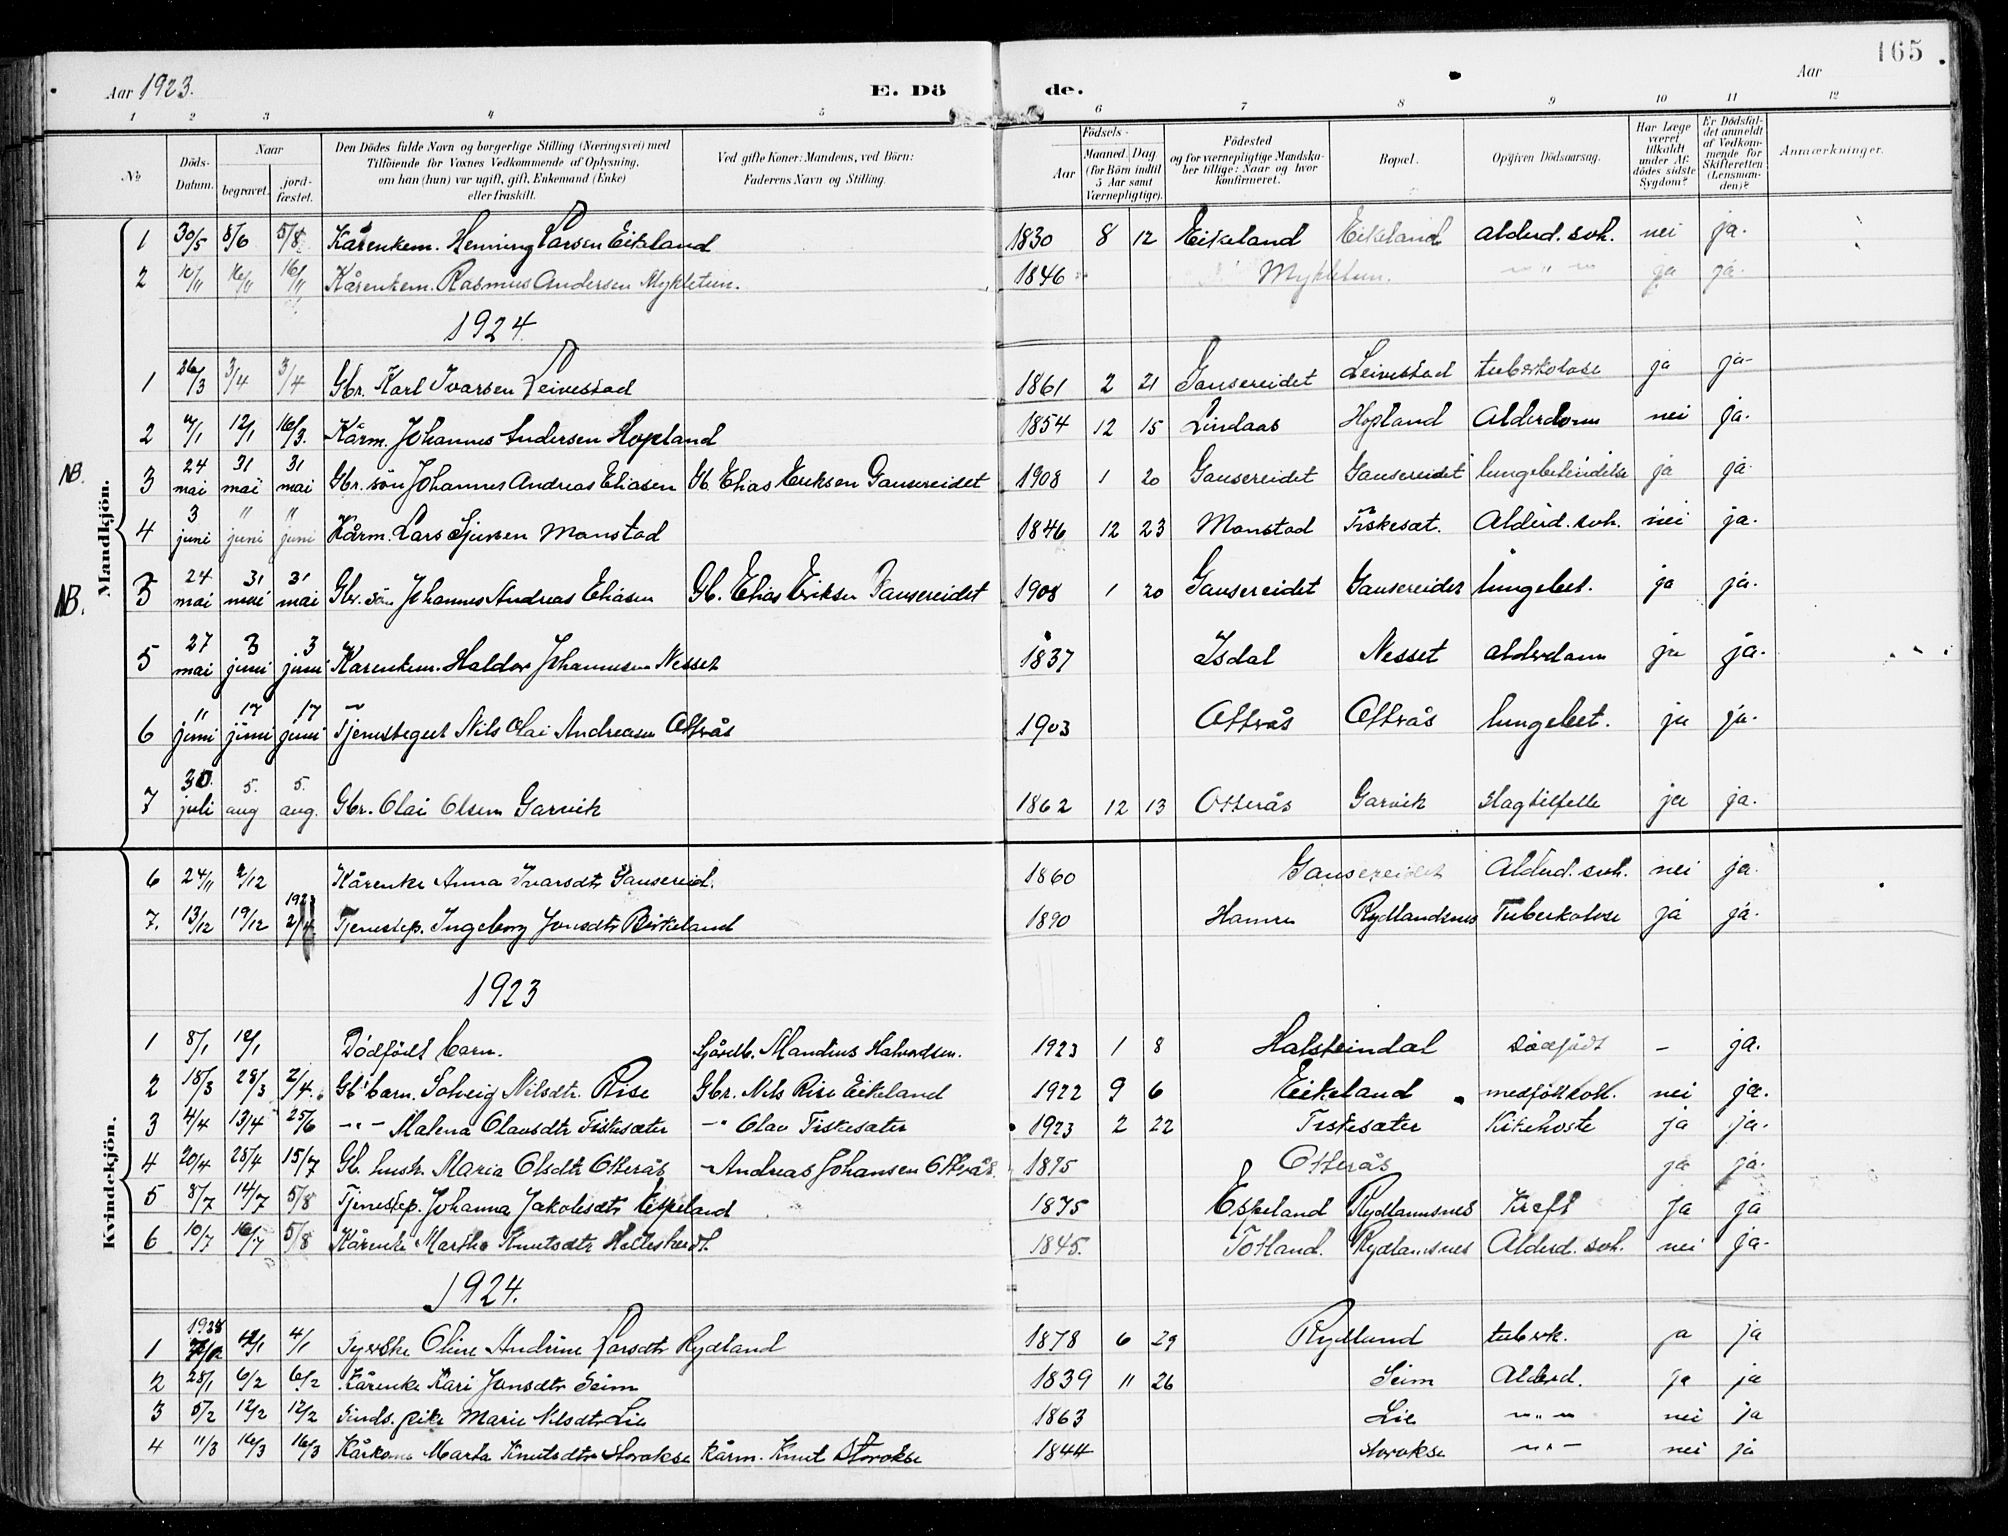 165
Aar 1923. E. Dö de. Aar
1 2 3 4 5 6 7 8 9 10 11 12
№ Döds-Datum. Naar begravet. jord-fæstet. Den Dödes fulde Navn og borgerlige Stilling (Næringsvei) med Tilföiende for Voxnes Vedkommende af Oplysning, om han (hun) var ugift, gift, Enkemand (Enke) eller fraskilt. Ved gifte Koner: Mandens, ved Börn: Faderens Navn og Stilling. Födsels- Aar Maaned. Dag (for Börn indtil 5 Aar samt Værnepligtige). Födested og for værnepligtige Mandskaber tillige: Naar og hvor konfirmeret. Bopæl. Opgiven Dödsaarsag. Har Læge været tilkaldt under Afdödes sidste Sygdom? Er Dödsfaldet anmeldt af Vedkommende for Skifteretten (Lensmanden)? Anmærkninger.
Mandkjön.
1 30/5 8/6 5/8 Kårenkem. Henning Larsen Eikeland 1830 8 12 Eikeland Eikeland alderd. svh. nei ja.
2 10/11 16/11 16/11 Kårenkem. Rasmus Andersen Mykletun. 1846 Mykletun. — " — ja ja.
1924.
1 26/3 3/4 3/4 Gbr. Karl Ivarsen Leivestad 1861 2 21 Gausereidet Leivestad tuberkolose ja ja-
2 4/1 12/1 16/3. Kårm. Johannes Andersen Hopland 1854 12 15 Lindaas Hopland Alderdom nei ja.
NB. 3 24 mai 31 mai 31 mai Gbr. sön Johannes Andreas Eliasen Gb. Elias Eriksen Gausereidet 1908 1 20 Gausereidet Gausereidet lungebetendelse ja ja
4 3 juni " juni " juni Kårm. Lars Sjursen Monstad 1846 12 23 Monstad Fiskesæt. Alderd. svh. nei ja.
NB. 5 24 mai 31 mai 31 mai Gbr. sön Johannes Andreas Eliasen Gb. Elias Eriksen Gausereidet 1908 1 20 Gausereidet Gausereidet lungebet. ja ja.
5 27 mai 3 juni 3 juni Kårenkem. Haldor Johannesen Nesset 1837 Isdal Nesset alderdom ja ja.
6 11 juni 17 juni 17 juni Tjenestegut Nils Olai Andreasen Otterås 1903 Otterås Otterås lungebet. ja ja.
7 30. juli 5. aug 5. aug. Gbr. Olai Olsen Garvik 1862 12 13 Otterås Garvik slagtilfelle ja ja.
Kvindekjön.
6 24/11 2/12 Kårenke Anna Ivarsdtr Gausereid. 1860 Gausereidet Alderd. svh. nei ja.
7. 13/12 19/12 1923 2/4 Tjenestep. Ingeborg Jonsdtr Birkeland 1890 Hamre Rydlandsnes Tuberkolose ja ja.
1923
1 8/1 12/1 Dödfödt barn. Sjöredb. Mandius Halvordsen. 1923 1 8 Halsteindal Dödfödt - ja.
2 18/3 28/3 2/4. Gb. barn. Solveig Nilsdtr. Rise Gbr. Nils Rise Eikeland 1922 9 6 Eikeland medfött svh. nei ja.
3 4/4 13/4 25/6 — " — Malena Olavsdtr Fiskesæter — " Olav Fiskesæter 1923 2 22 Fiskesæter Kikehoste ja ja.
4 20/4 28/4 15/7 Gb. hustr. Maria Olsdtr Otterås — Andreas Johansen Otterås. 1875 Otterås ja ja.
5 8/7 14/7 5/8 Tjenestep. Johanna Jakobsdtr Espeland 1875 Espeland Rydlannsnes Kreft Ja ja
6 10/7 16/7 5/8 Kårenke Martha Knutsdtr 1845. Totland. Rydlansnes Alderd. svh. nei ja.
1924.
1 1923 12/1 4/1 Syerske Oline Andrine Larsdtr Rydland 1878 6 29 Rydland tuberk. ja ja
2 28/1 6/2 6/2 Kårenke Kari Jonsdtr Seim 1839 11 26 Seim Alderd. ja ja
3 5/2 12/2 12/2 Sinds. pike Marie Nilsdtr Lie 1863 Lie — " — nei ja
4 11/3 16/3 16/3 Kårkona Marta Knutsdtr Storokse Kårm. Knut Storokse 1844 Storokse — " — nei ja